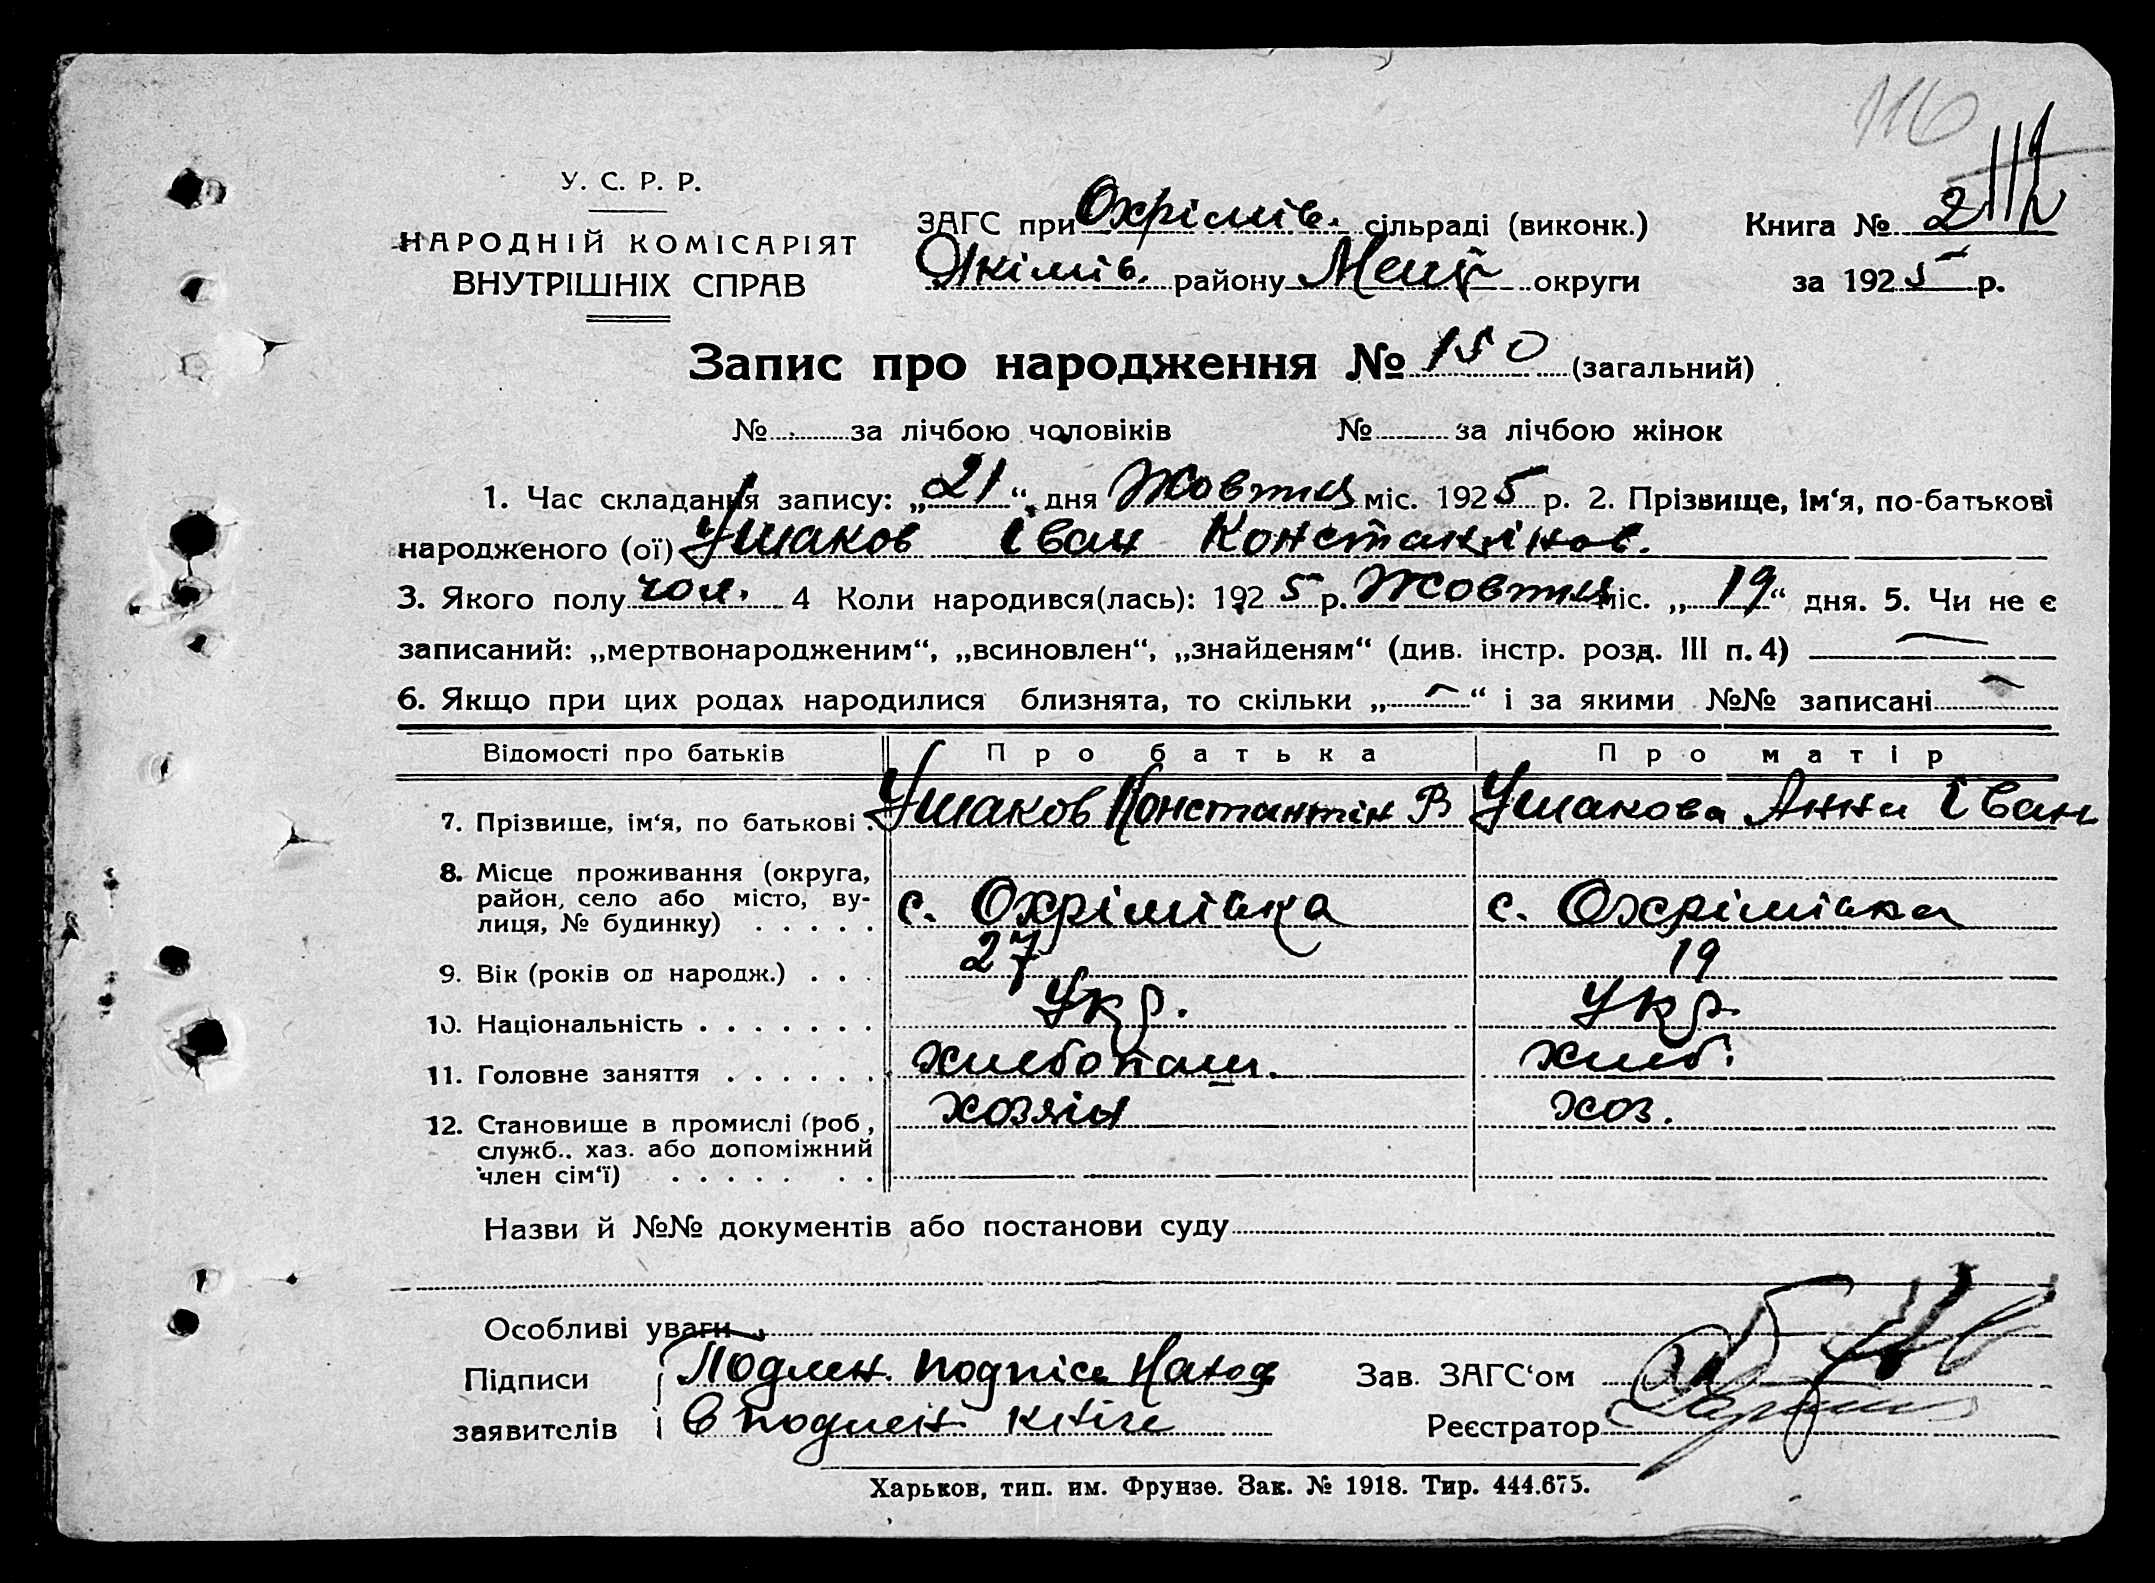 116
У. С. Р. Р.
НАРОДНІЙ КОМІСАРІЯТ
ВНУТРІШНІХ СПРАВ
ЗАГС при Охрімів. сільраді (виконк.)
Книга № 2
Якімів. району Меліт округи
за 1925 р.
Запис про народження № 150 (загальний)
№ за лічбою чоловіків № за лічбою жінок
1. Час складання запису: „21“ дня Жовтня міс. 1925 р. 2. Прізвище, ім‘я, по-батькові
народженого (ої) Ушаков Іван Константінов.
3. Якого полу чол. 4 Коли народився(лась): 1925 р. Жовтня міс. „19“ дня. 5. Чи не є
записаний: „мертвонародженим“, „всиновлен“, „знайденям“ (див. інстр. розд. III п. 4) —
6. Якщо при цих родах народилися близнята, то скільки „—“ і за якими №№ записані —
Відомості про батьків Про батька Про матір
7. Прізвище, ім‘я, по батькові . Ушаков Константін В Ушакова Анна Іван
8. Місце проживання (округа,
район, село або місто, ву-
лиця, № будинку) . . . . . с. Охрімівка с. Охрімівка
9. Вік (років од народж.) . . . 27 19
10. Національність . . . . . . . Укр. Укр.
11. Головне заняття . . . . . . хлебопаш. хлеб.
12. Становище в промислі (роб,
служб., хаз. або допоміжний
член сім‘ї) . . . . . . . хозяін хоз.
Назви й №№ документів або постанови суду
Особливі уваги
Підписи Подлен. подпісь Наход
Зав. ЗАГС‘ом
заявителів в подлен книге
Реєстратор
Харьков, тип. им. Фрунзе. Зак. № 1918. Тир. 444.675.